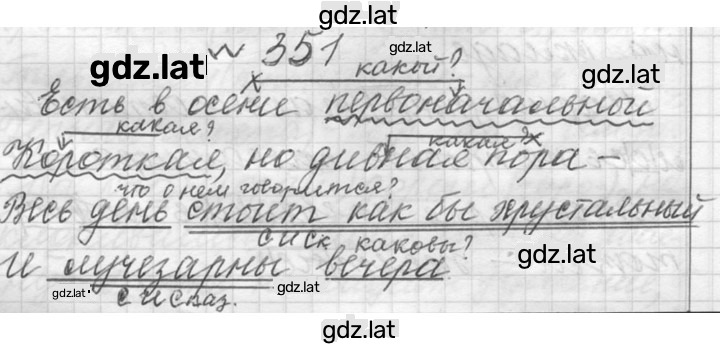 gdz.lat
№ 351
gdz.lat
gdz.lat
какой?
gdz.lat
Есть в осени первоначальной
какая?
какая?
Короткая, но дивная пора -
что о нем говорится?
Весь день стоит как бы хрустальный
с и ск каковы?
gdz.lat
И лучезарны вечера.
gdz.lat
с и сказ.
gdz.lat
gdz.lat